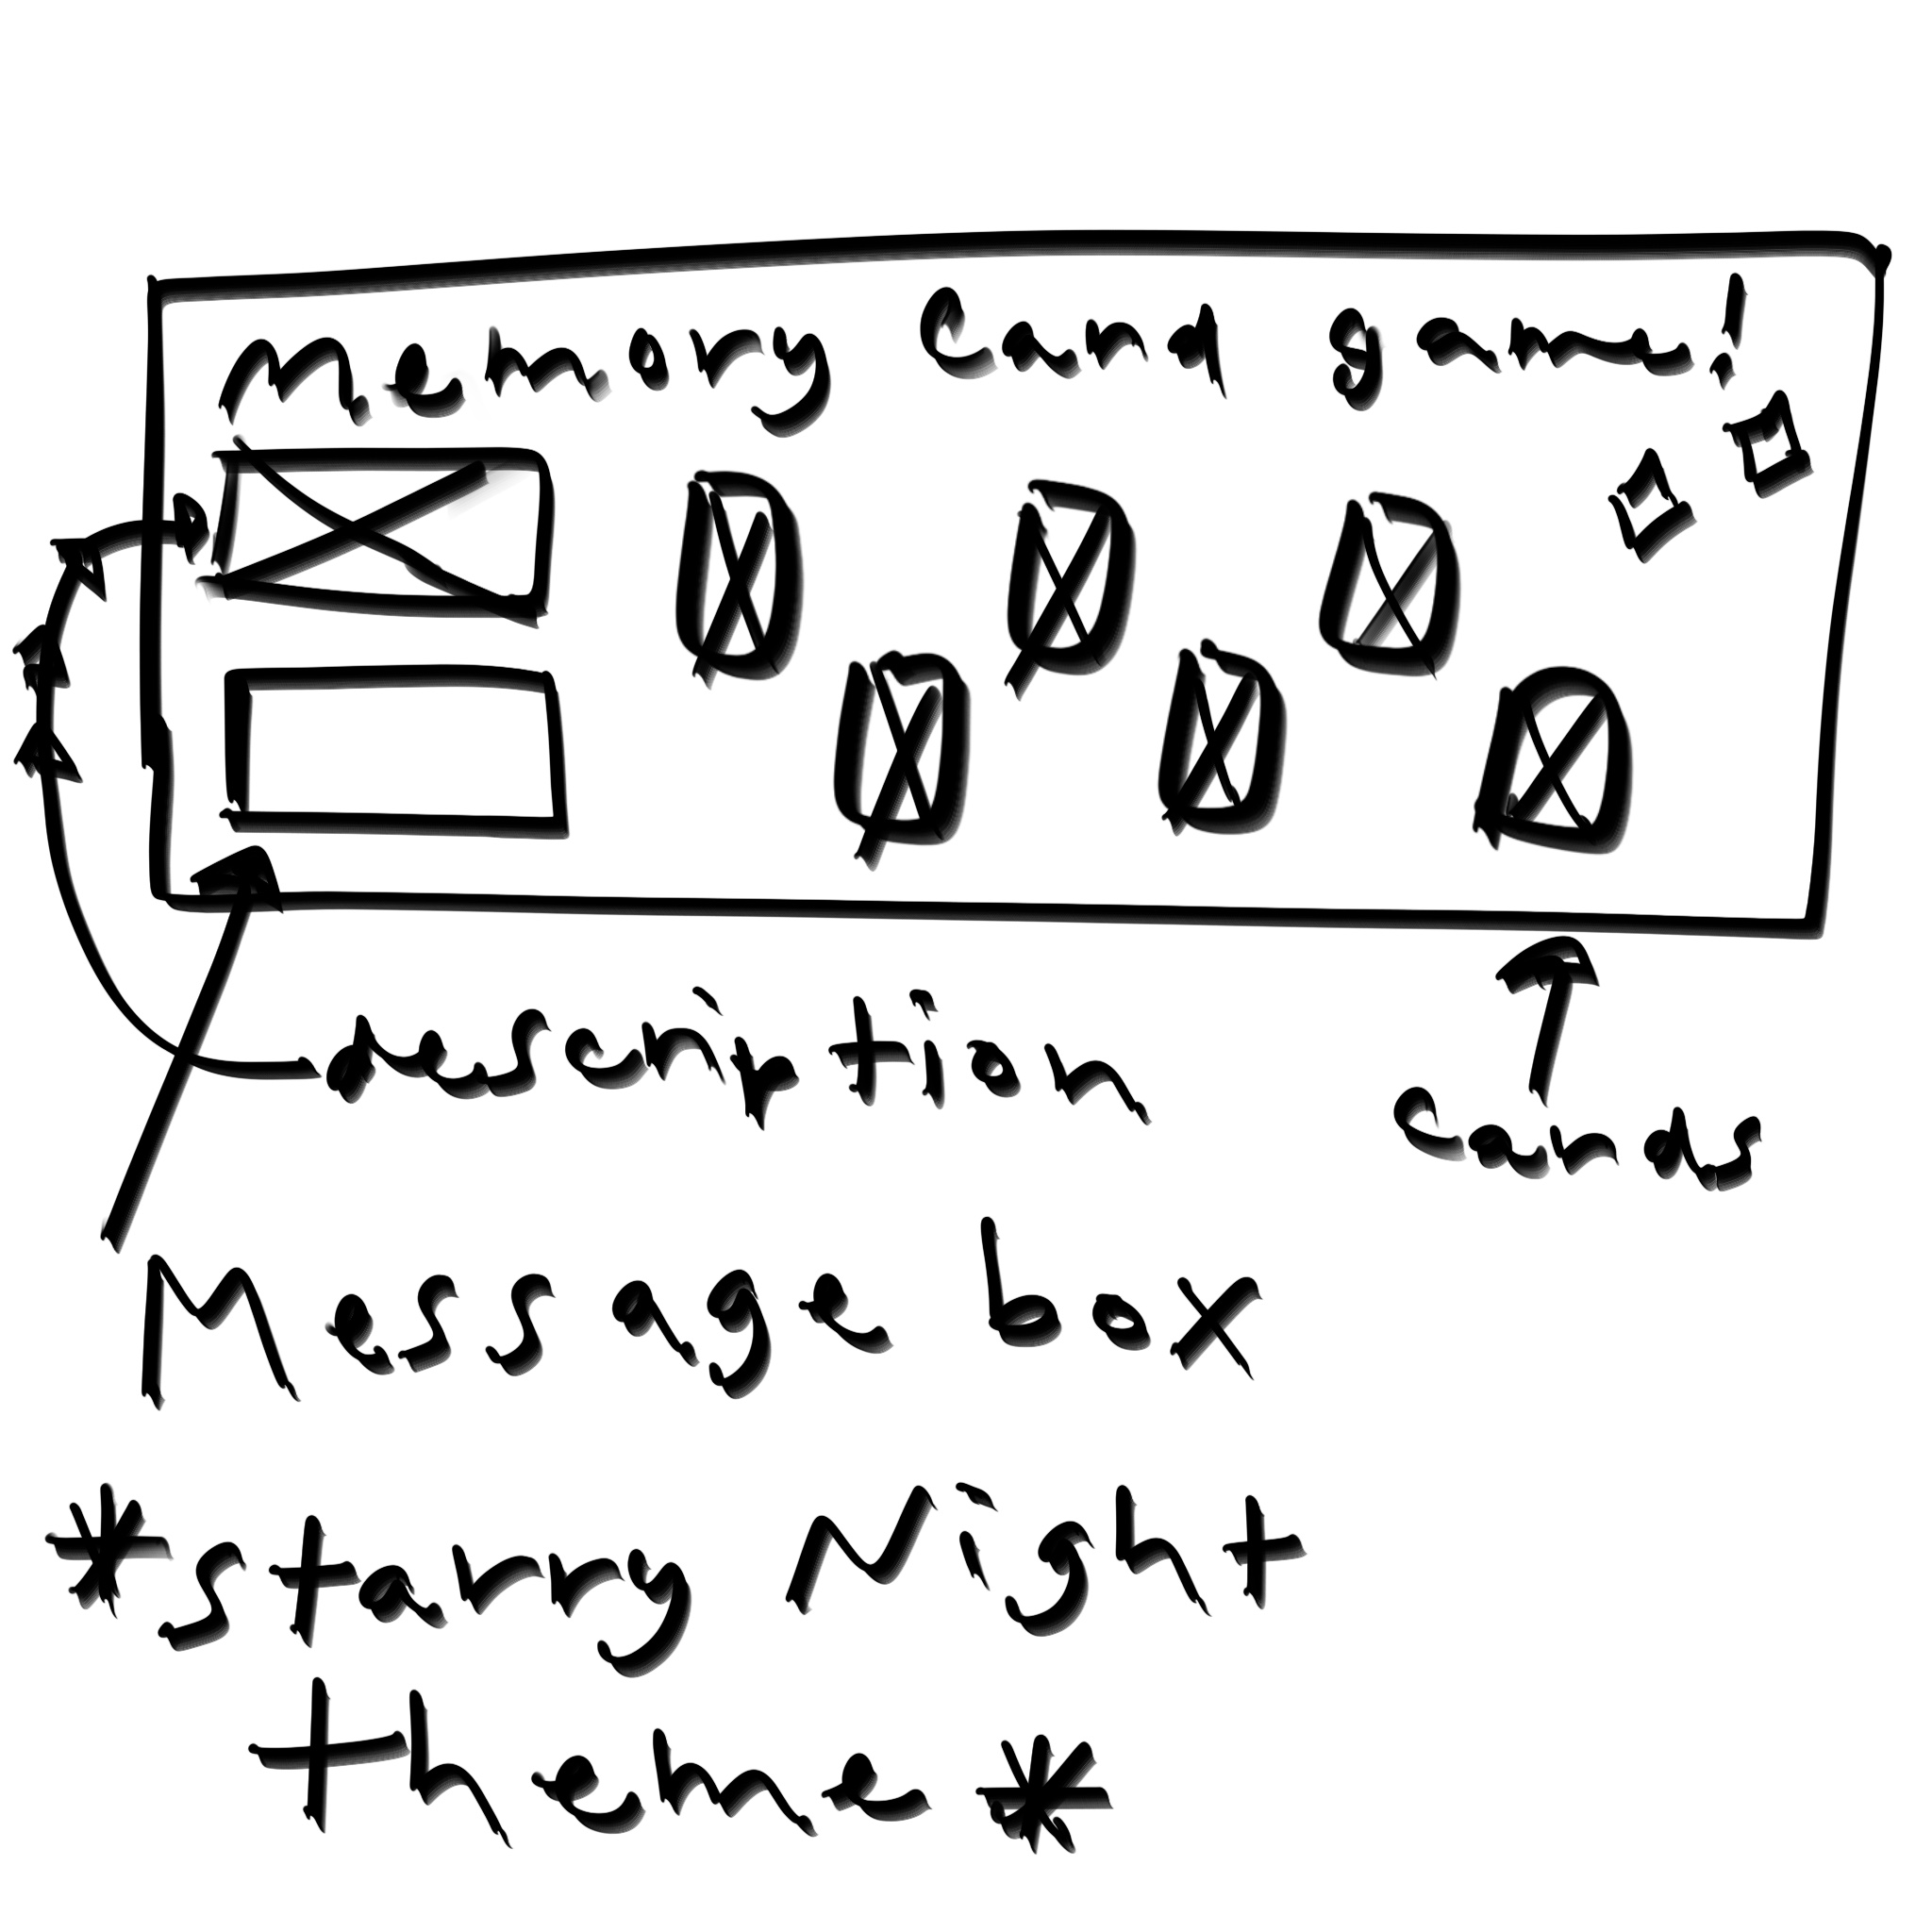 Memory Card game!
description
Cards
Message box
*starry Night
theme*